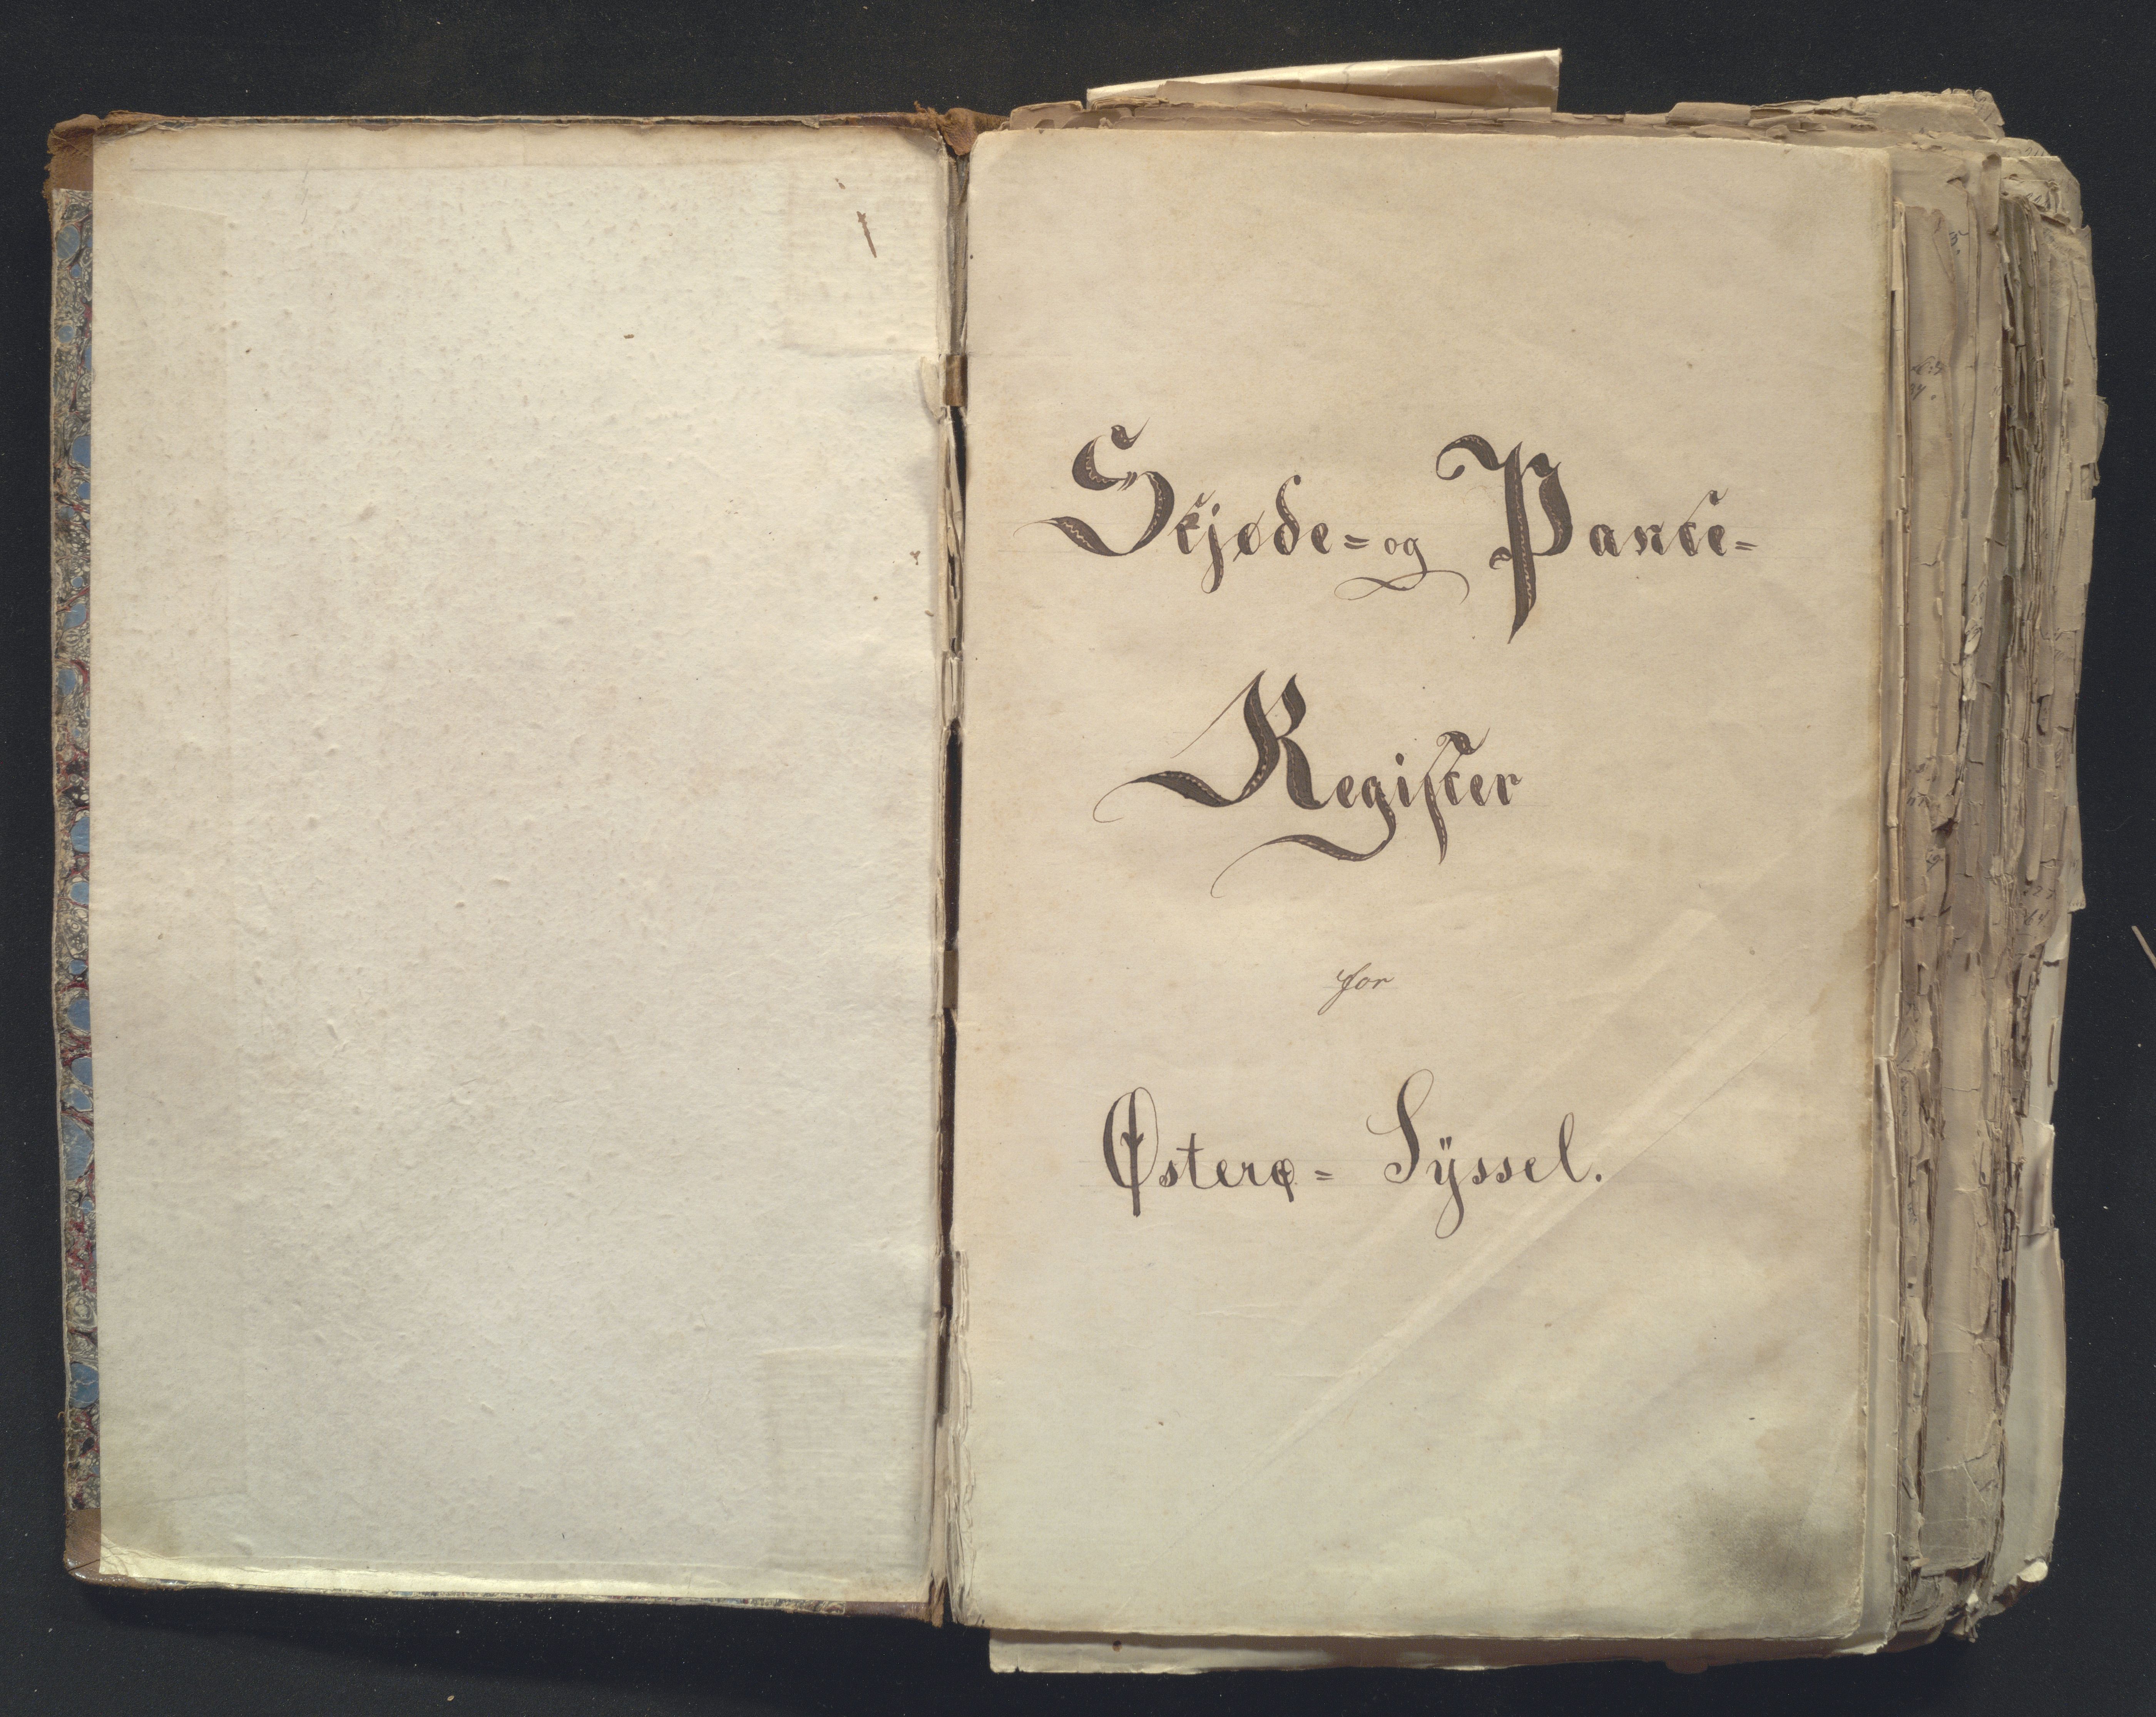 Skjøde= og Pante=
Register
for
Østerø= Sÿssel.